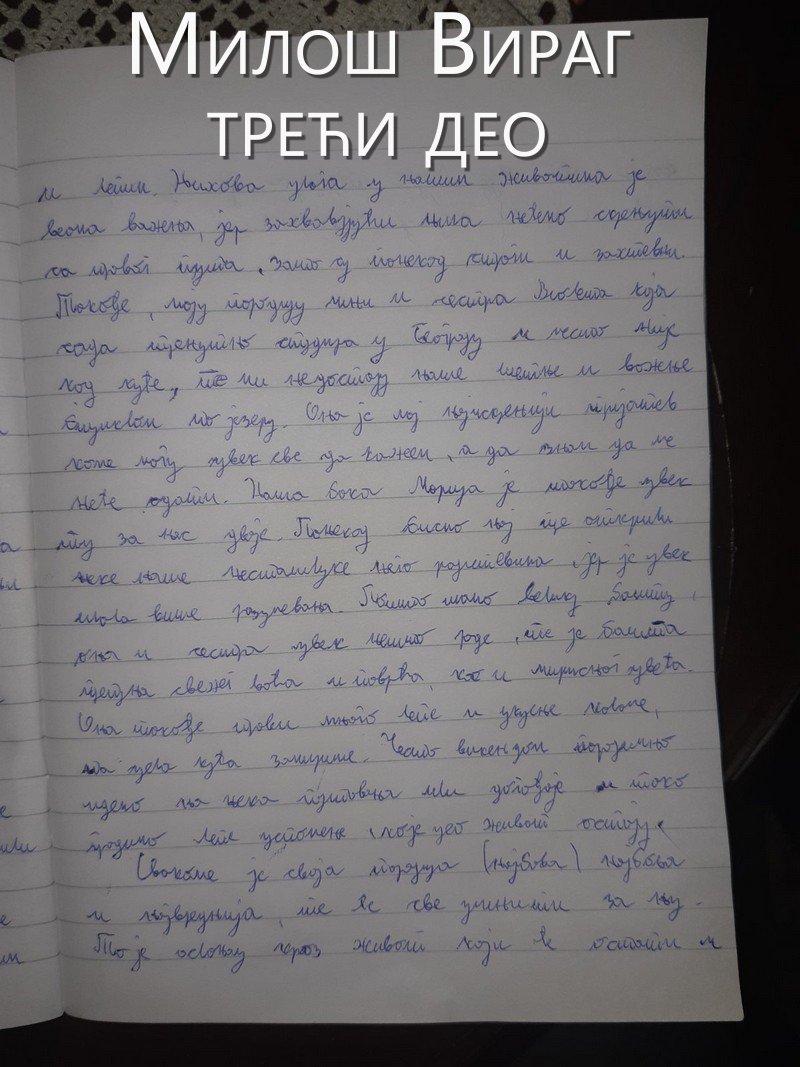 Милош Вираг
трећи део
и лепши. Њихова улога у нашим животима је
веома важна, јер захваљујући њима нећемо скренути
са правог пута, зато су понекад строги и захтевни.
Такође, моју породицу чини и сестра Виолета која
сада тренутно студира у Београду и често није
код куће, те ми недостају наше шетње и вожње
бициклом по језеру. Она је мој најискренији пријатељ
коме могу увек све да кажем, а да знам да ме
неће одати. Наша бака Марија је такође увек
ту за нас двоје. Понекад бисмо њој пре открили
неке наше несташлуке него родитељима, јер је увек
имала више разумевања. Пошто имамо велику башту,
она и сестра увек нешто раде, те је башта
пуна свежег воћа и поврћа, као и мирисног цвећа.
Она такође прави много лепе и укусне колаче,
па цела кућа замирише. Често викендом породично
идемо на нека путовања или догађаје и тако
градимо лепе успомене, које цео живот остају.
Свакоме је своја породица (најбоља) најбоља
и највреднија, те ће све учинити за њу.
То је ослонац кроз живот који ће остати и